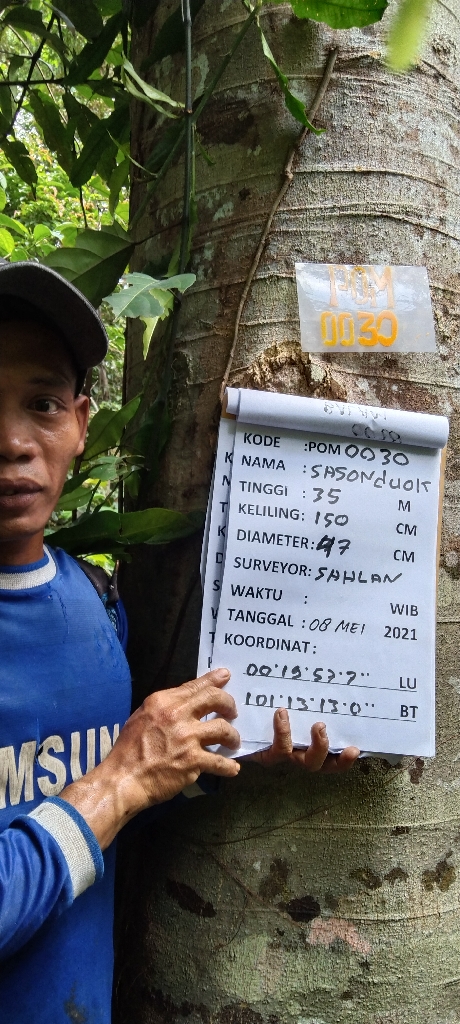 POM
0030
KODE :POM 0030
NAMA :SASONduok
TINGGI :35 M
KELILING: 150 CM
DIAMETER: 47 CM
SURVEYOR: SAHLAN
WAKTU : WIB
TANGGAL : 08 MEI 2021
KOORDINAT:
00°19'57.7" LU
101°13'13.0" BT
MSUN